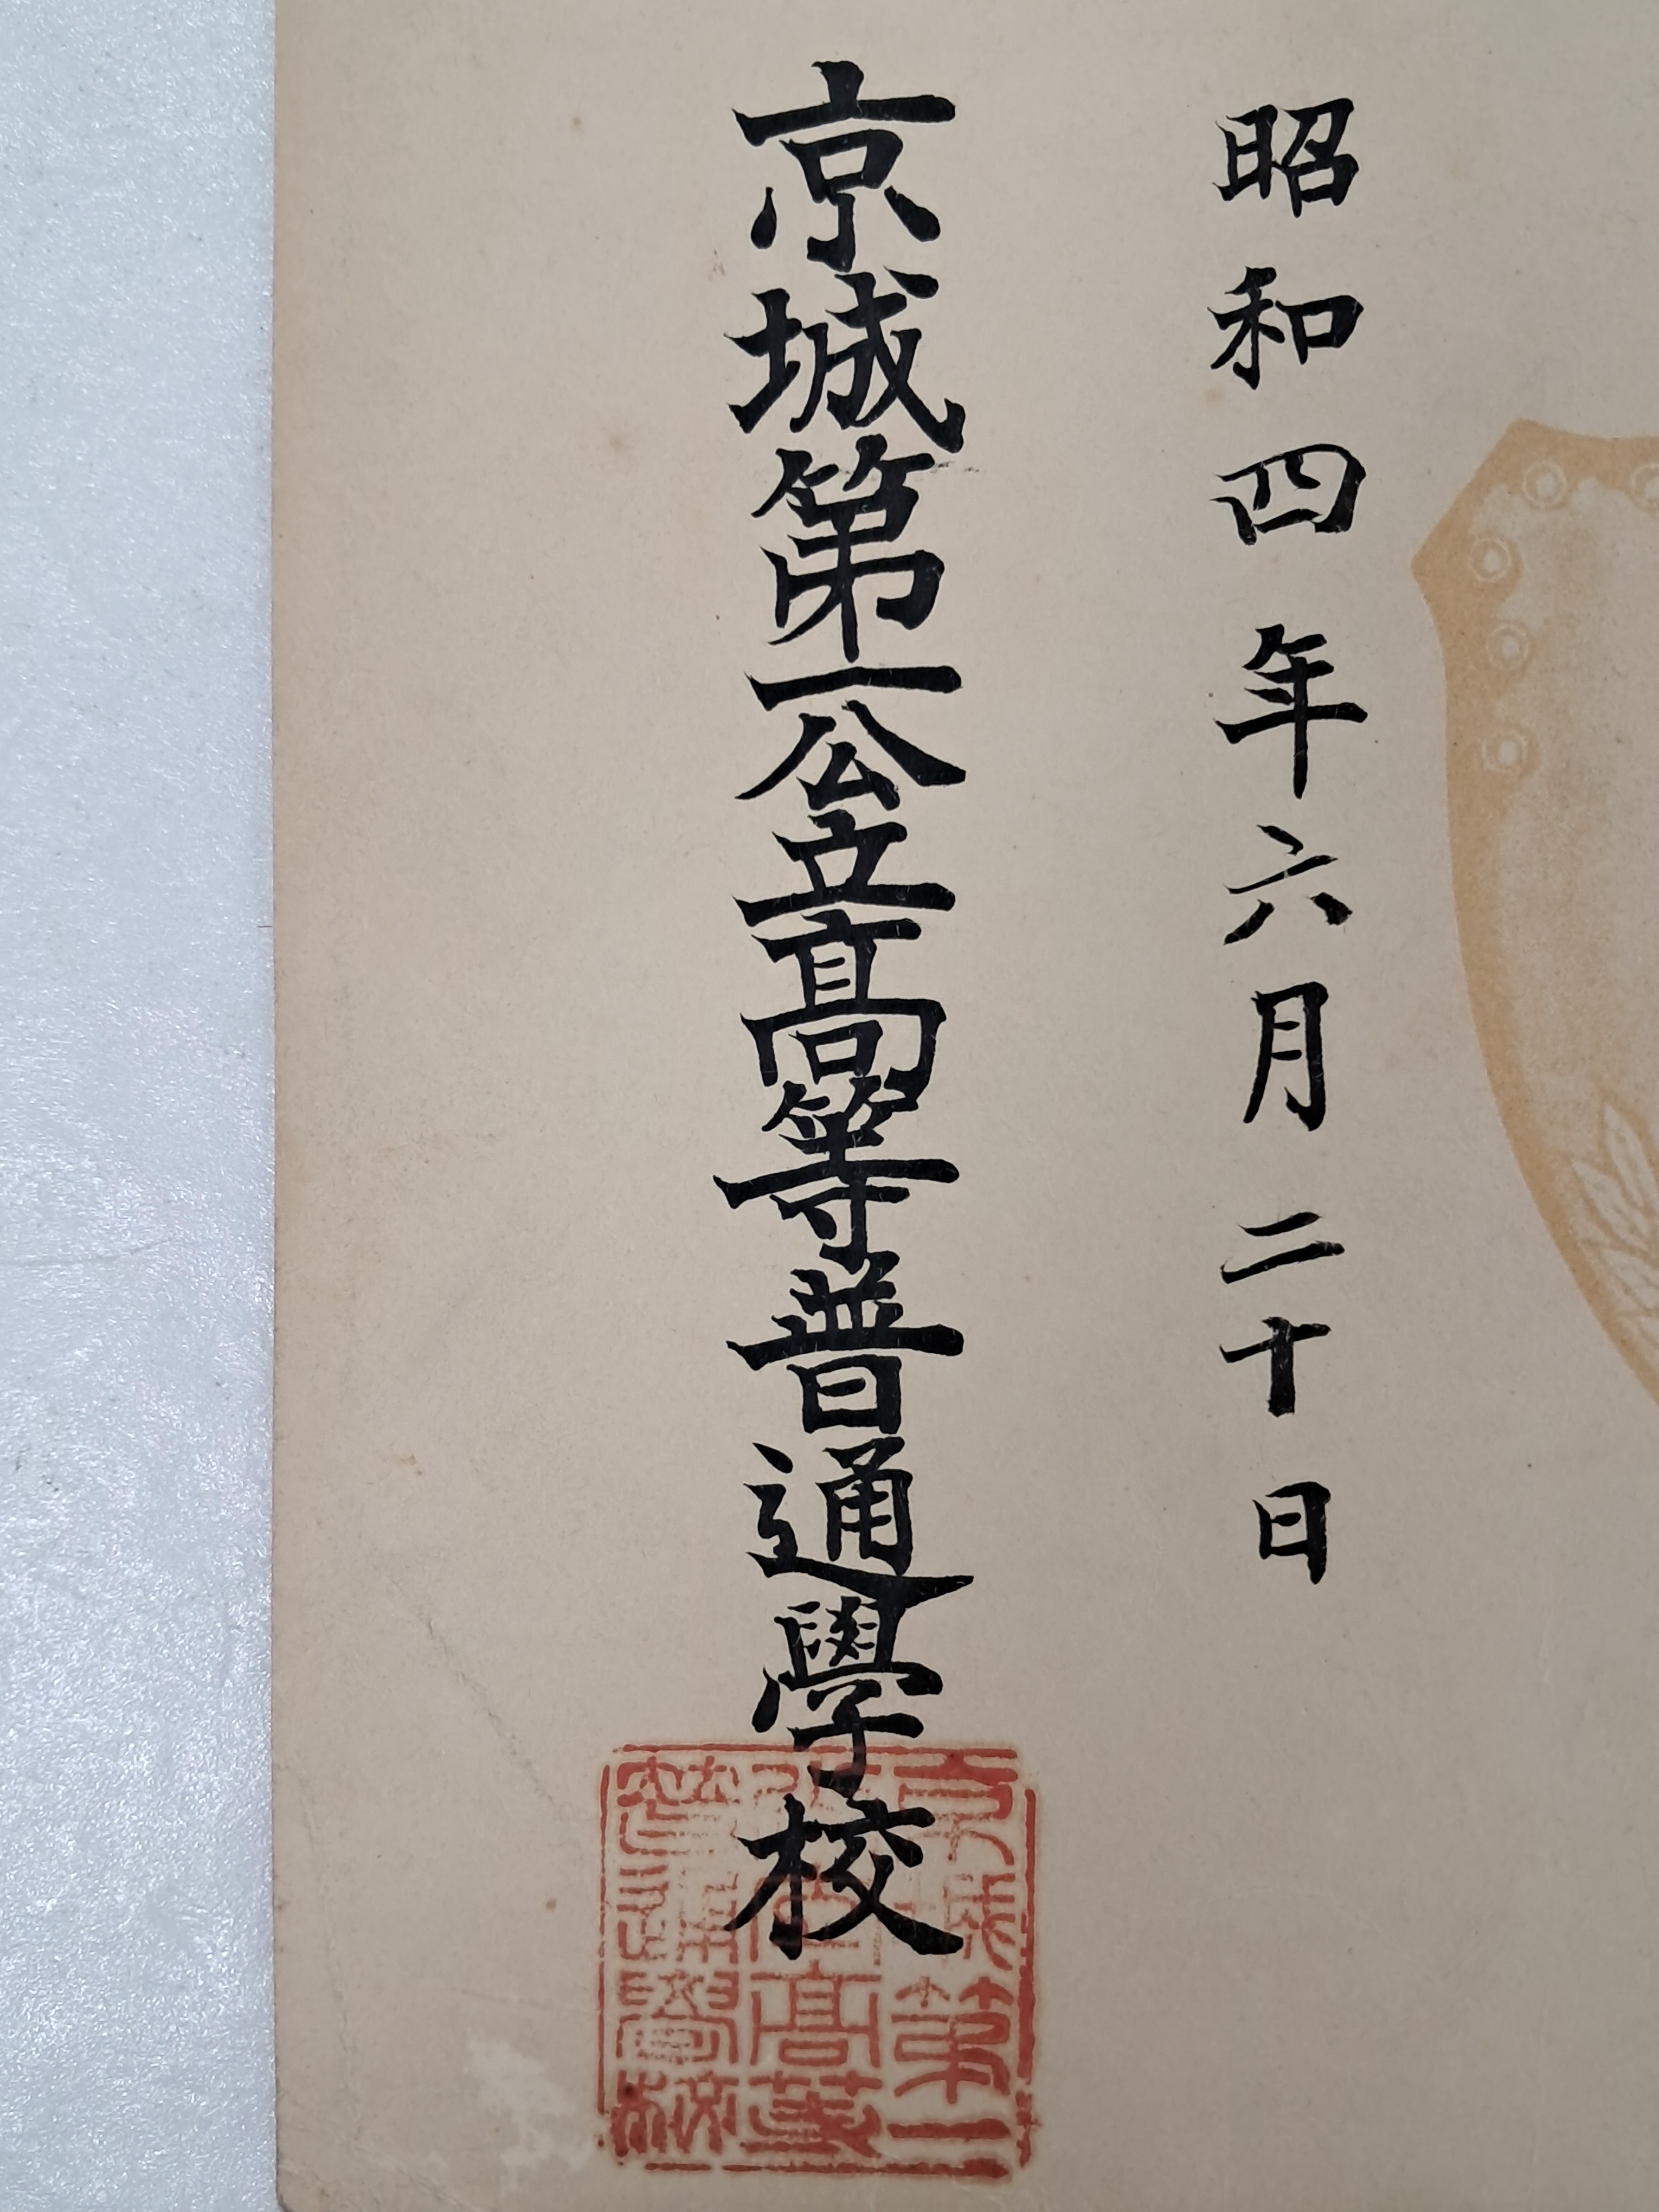 昭和四年六月二十日
京城第一公立高等普通學校
京城第一
公立高等
普通學校